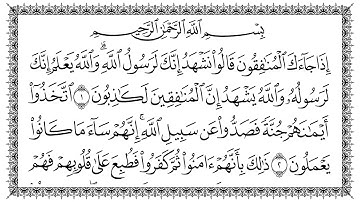 بِسْمِ اللَّهِ الرَّحْمَٰنِ الرَّحِيمِ
إِذَا جَاءَكَ الْمُنَافِقُونَ قَالُوا نَشْهَدُ إِنَّكَ لَرَسُولُ اللَّهِ ۗ وَاللَّهُ يَعْلَمُ إِنَّكَ
لَرَسُولُهُ وَاللَّهُ يَشْهَدُ إِنَّ الْمُنَافِقِينَ لَكَاذِبُونَ ۝١ اتَّخَذُوا
أَيْمَانَهُمْ جُنَّةً فَصَدُّوا عَن سَبِيلِ اللَّهِ ۚ إِنَّهُمْ سَاءَ مَا كَانُوا
يَعْمَلُونَ ۝٢ ذَٰلِكَ بِأَنَّهُمْ ءَامَنُوا ثُمَّ كَفَرُوا فَطُبِعَ عَلَىٰ قُلُوبِهِمْ فَهُمْ